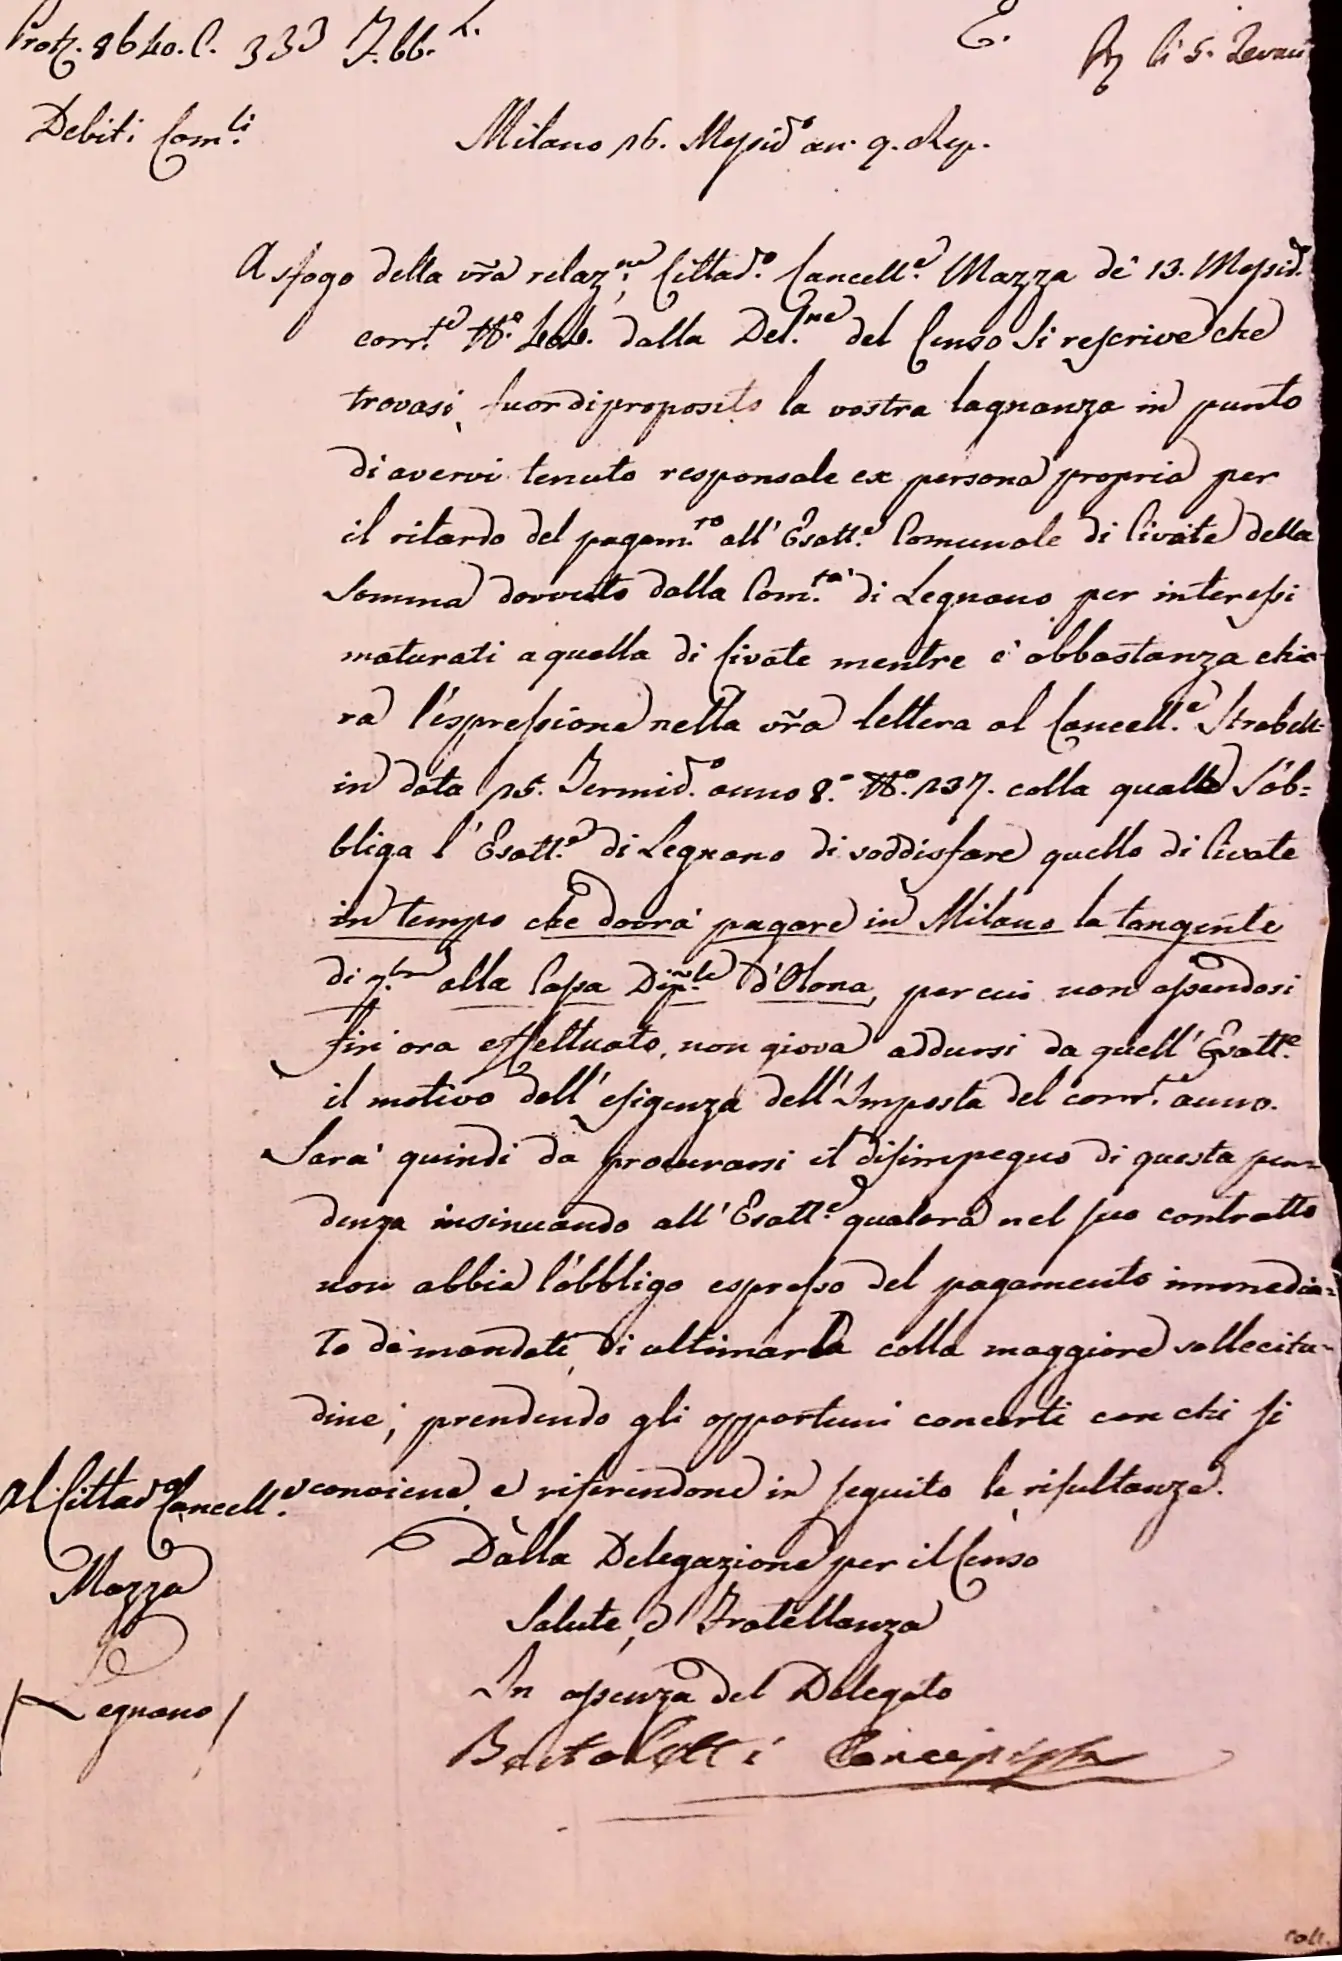 Prot. 8640. C. 333 F. bb. L.
E.
li 5.
Debiti Com.li
Milano 16. Messid.o an. 9. Rep.
A sfogo della v̄ra relaz.ne, Cittad.o Cancell.e Mazza de' 13. Messid.o
corr.te N.o dalla Del.ne del Censo si rescrive che
trovasi fuor di proposito la vostra lagnanza in punto
di avervi tenuto responsale ex persona propria per
il ritardo del pagam.to all'Esatt.e Comunale di Civate della
somma dovuta dalla Com.tà di Legnano per interessi
maturati a quella di Civate mentre è abbastanza chia-
ra l'espressione nella v̄ra lettera al Cancell.e
in data 15. Termid.o anno 8.o N.o 137. colla quale s'ob=
bliga l'Esatt.e di Legnano di soddisfare quello di Civate
in tempo che dovrà pagare in Milano la tangente
di alla Cassa Dip.le d'Olona, per cui non essendosi
fin'ora effettuato, non giova addursi da quell'Esatt.e
il motivo dell'esigenza dell'Imposta del corr.e anno.
Sarà quindi da procurarsi il disimpegno di questa pen=
denza insinuando all'Esatt.e qualora nel suo contratto
non abbia l'obbligo espresso del pagamento immedia=
to dà mandati, di ultimarla colla maggiore sollecitu=
dine; prendendo gli opportuni concerti con chi si
conviene, e riferendone in seguito le risultanze.
Al Cittad.o Cancell.e
Mazza
Legnano
Dalla Delegazione per il Censo
Salute, e Fratellanza
In assenza del Delegato
Bertoletti Concepista
coll.